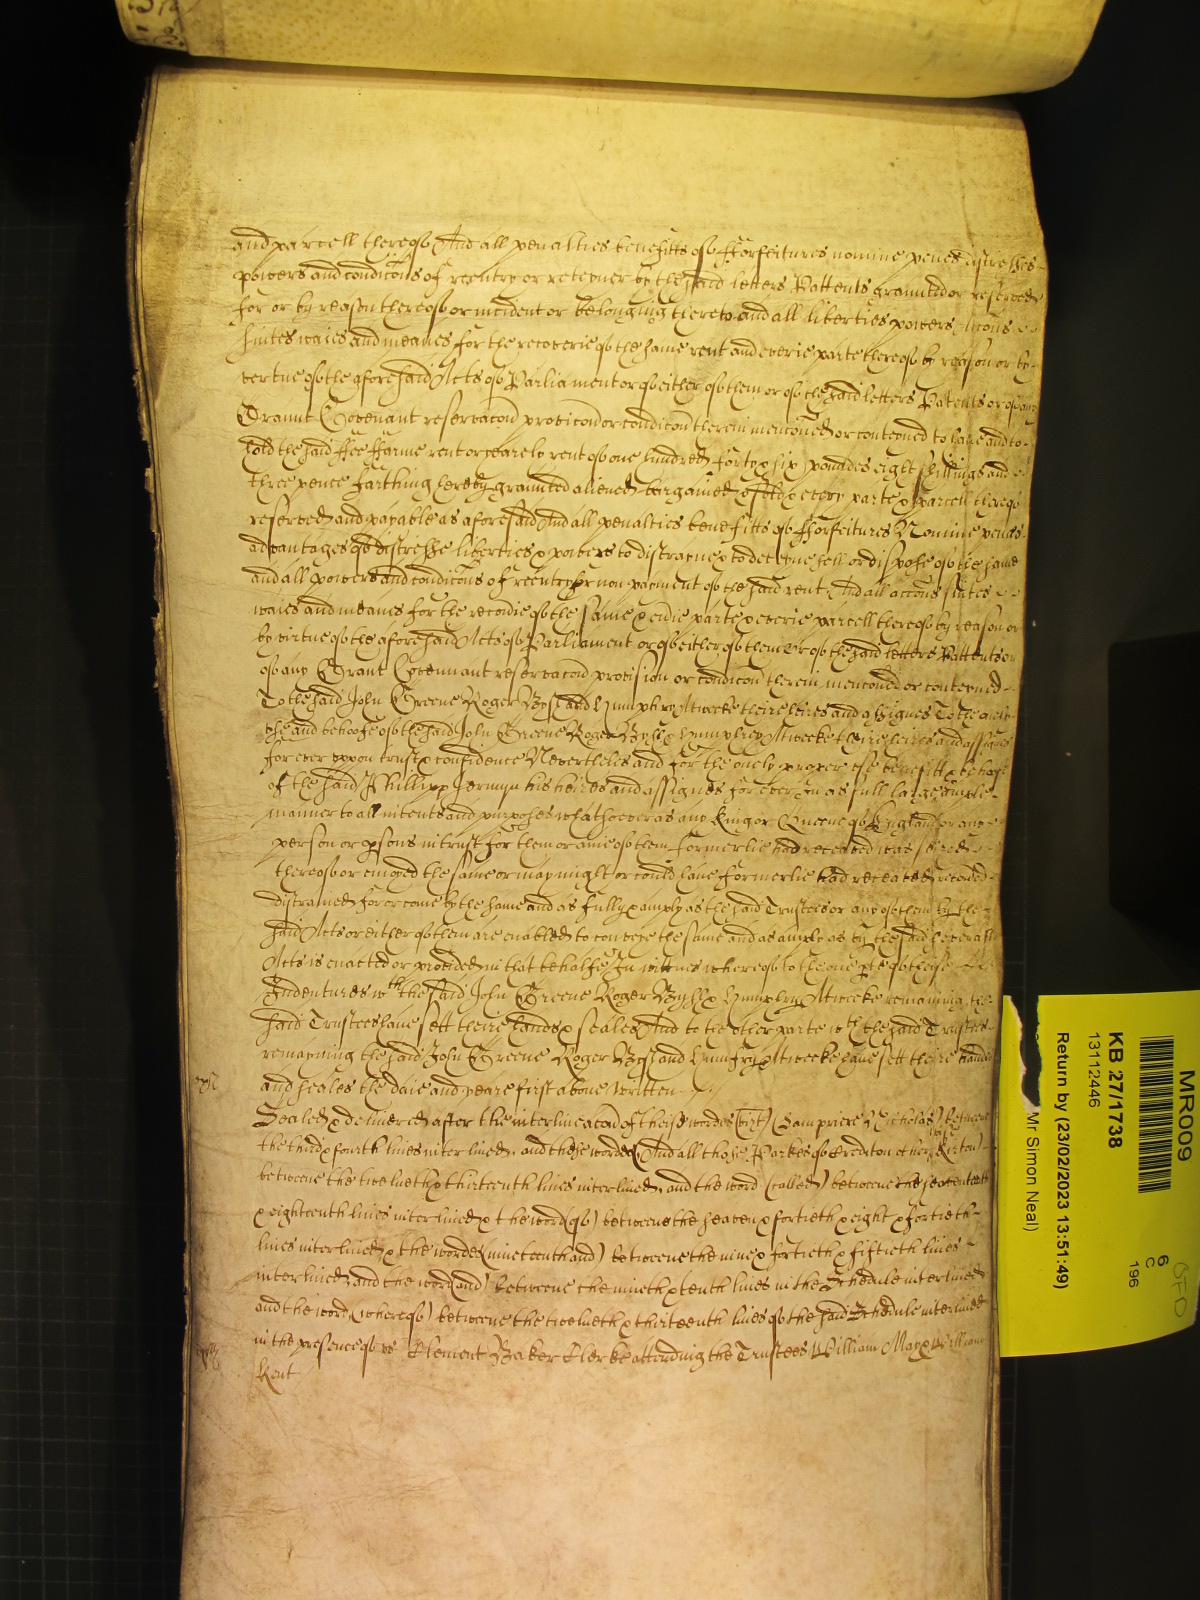 and parcell thereof And all penalties benefitts of fforfeitures nomine penes distresses
powers and condicons of reentry or reteyner by the said letters Pattents graunted or reserved
for or by reason thereof or incident or belonging thereto and all liberties powers accons
suites waies and meanes for the recoverie of the same rent and everie parte thereof by reason or by
vertue of the aforesaid Acts of Parliament or of either of them or of the said letters Patents or of any
Graunt Covenant reservacon provicon or condicon therein mencioned or conteyned to have and to
hold the said ffee ffarme rent or yearely rent of one hundred forty & six poundes eight shillings and
three pence farthing hereby graunted aliened bargained & sold & every parte & parcell thereof
reserved and payable as aforesaid And all penalties benefitts of fforfeitures Nomine penes
advantages of distresse liberties & powers to distrayne & to deteyne sell or dispose of the same
and all powers and condicons of reentry for non payment of the said rent And all accons suites
waies and meanes for the recovie of the same & evie parte & everie parcell thereof by reason or
by virtue of the aforesaid Acts of Parliament or of either of them or of the said letters Pattents or
of any Grant Covennant reservacon provision or condicon therein mencioned or conteyned
To the said John Greene Roger Bysh and Humphry Atweeke theire heires and assignes To the only
use and behoofe of the said John Greene Roger Bysh & Humphrey Atweeke theire heires and assignes
for ever uppon trust & confidence Neverthelesse and for the onely proper use benefitt & behoofe
of the said Phillipp Jermyn his heires and assignes for ever In as full large ample
manner to all intents and purposes whatsoever as any King or Queene of England or any
person or psons in trust for them or anie of them formerlie had received was seized
thereof or enioyed the same or may might or could have formerlie had received recoved
distrained for or come by the same and as fully & amply as the said Trustees or any of them by the
said Acts or either of them are enabled to convey the same and as amply as by the said severall
Acts is enacted or provided in that behalfe In wittnes whereof to the one pte of these
Indentures wth the said John Greene Roger Bysh & Humphry Atweeke remaining the
said Trustees have sett theire hands & seales And to the other parte wth the said Trustees
remayning the said John Greene Roger Bysh and Humfry Atweeke have sett theire hands
and seales the daie and yeare first above written
Sealed & delivered after the interlineacon of these wordes (vizt) Nicholas) betweene
the third & fourth lines interlined, and these wordes (And all those Parkes of Crediton otherwise Kirton)
betweene the twelveth & thirteenth lines interlined, and the word (called) betweene the seaventeenth
& eighteenth lines interlined & the word (of) betweene the seaven & fortieth & eight & fortieth
lines interlined & the wordes (nineteenth and) betweene the nine & fortieth & fiftieth lines
interlined, and the word (and) betweene the nineth & tenth lines in the Schedule interlined
and the word (whereof) betweene the twelveth & thirteenth lines of the said Schedule interlined
in the presence of us Clement Baker Clerke attending the Trustees William May & William
Kent
MR009
KB 27/1738
13112446
Return by (23/02/2023 13:51:49)
Mr Simon Neal)
6
C
196